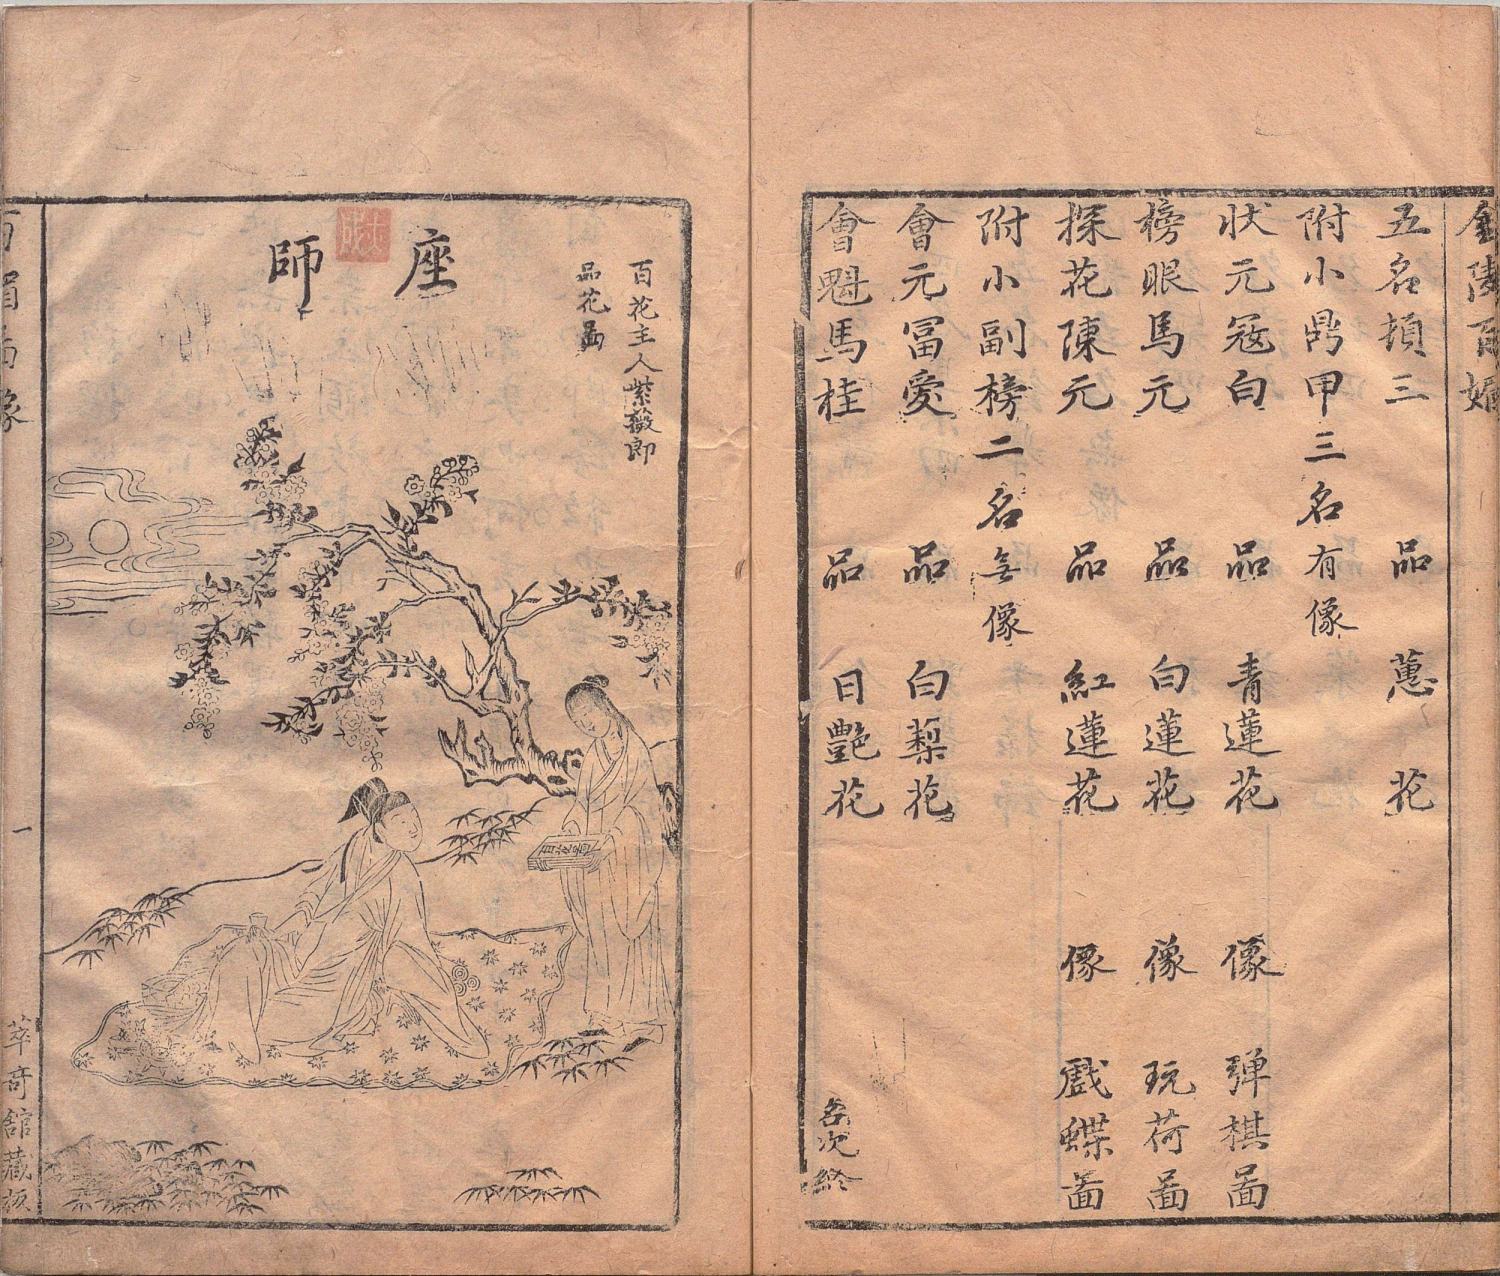 金陵百媚
五名頊三 品 蕙花
附小鼎甲三名有像
状元冦白 品 青蓮花 像 弹棋啚
榜眼馬元 品 白蓮花 像 玩荷啚
探花陳元 品 紅蓮花 像 戲蝶啚
附小副榜二名無像
會元冨愛 品 白梨花
會魁馬桂 品 日艷花
名次終
百花主人紫薇郎
品花啚
座師
百媚啚像
一
萃奇舘藏板